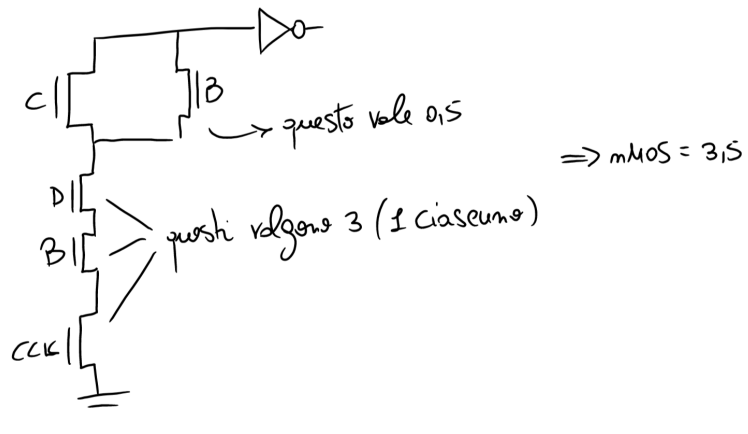 C
B
→ questo vale 0,5
⇒ nMOS = 3,5
D
questi valgono 3 (1 ciascuno)
B
CLK